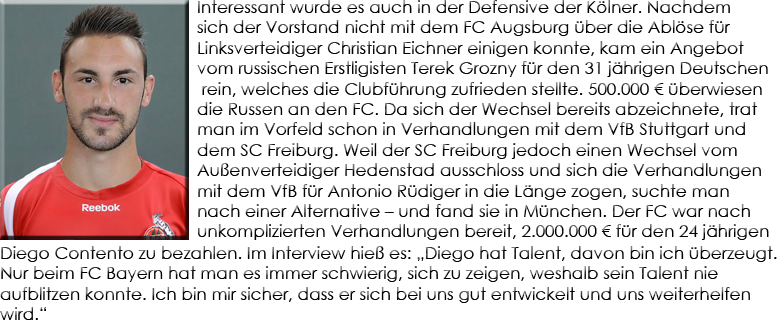 Interessant wurde es auch in der Defensive der Kölner. Nachdem
sich der Vorstand nicht mit dem FC Augsburg über die Ablöse für
Linksverteidiger Christian Eichner einigen konnte, kam ein Angebot
vom russischen Erstligisten Terek Grozny für den 31 jährigen Deutschen
rein, welches die Clubführung zufrieden stellte. 500.000 € überwiesen
die Russen an den FC. Da sich der Wechsel bereits abzeichnete, trat
man im Vorfeld schon in Verhandlungen mit dem VfB Stuttgart und
dem SC Freiburg. Weil der SC Freiburg jedoch einen Wechsel vom
Außenverteidiger Hedenstad ausschloss und sich die Verhandlungen
mit dem VfB für Antonio Rüdiger in die Länge zogen, suchte man
nach einer Alternative – und fand sie in München. Der FC war nach
unkomplizierten Verhandlungen bereit, 2.000.000 € für den 24 jährigen
Diego Contento zu bezahlen. Im Interview hieß es: „Diego hat Talent, davon bin ich überzeugt.
Nur beim FC Bayern hat man es immer schwierig, sich zu zeigen, weshalb sein Talent nie
aufblitzen konnte. Ich bin mir sicher, dass er sich bei uns gut entwickelt und uns weiterhelfen
wird.“
Reebok